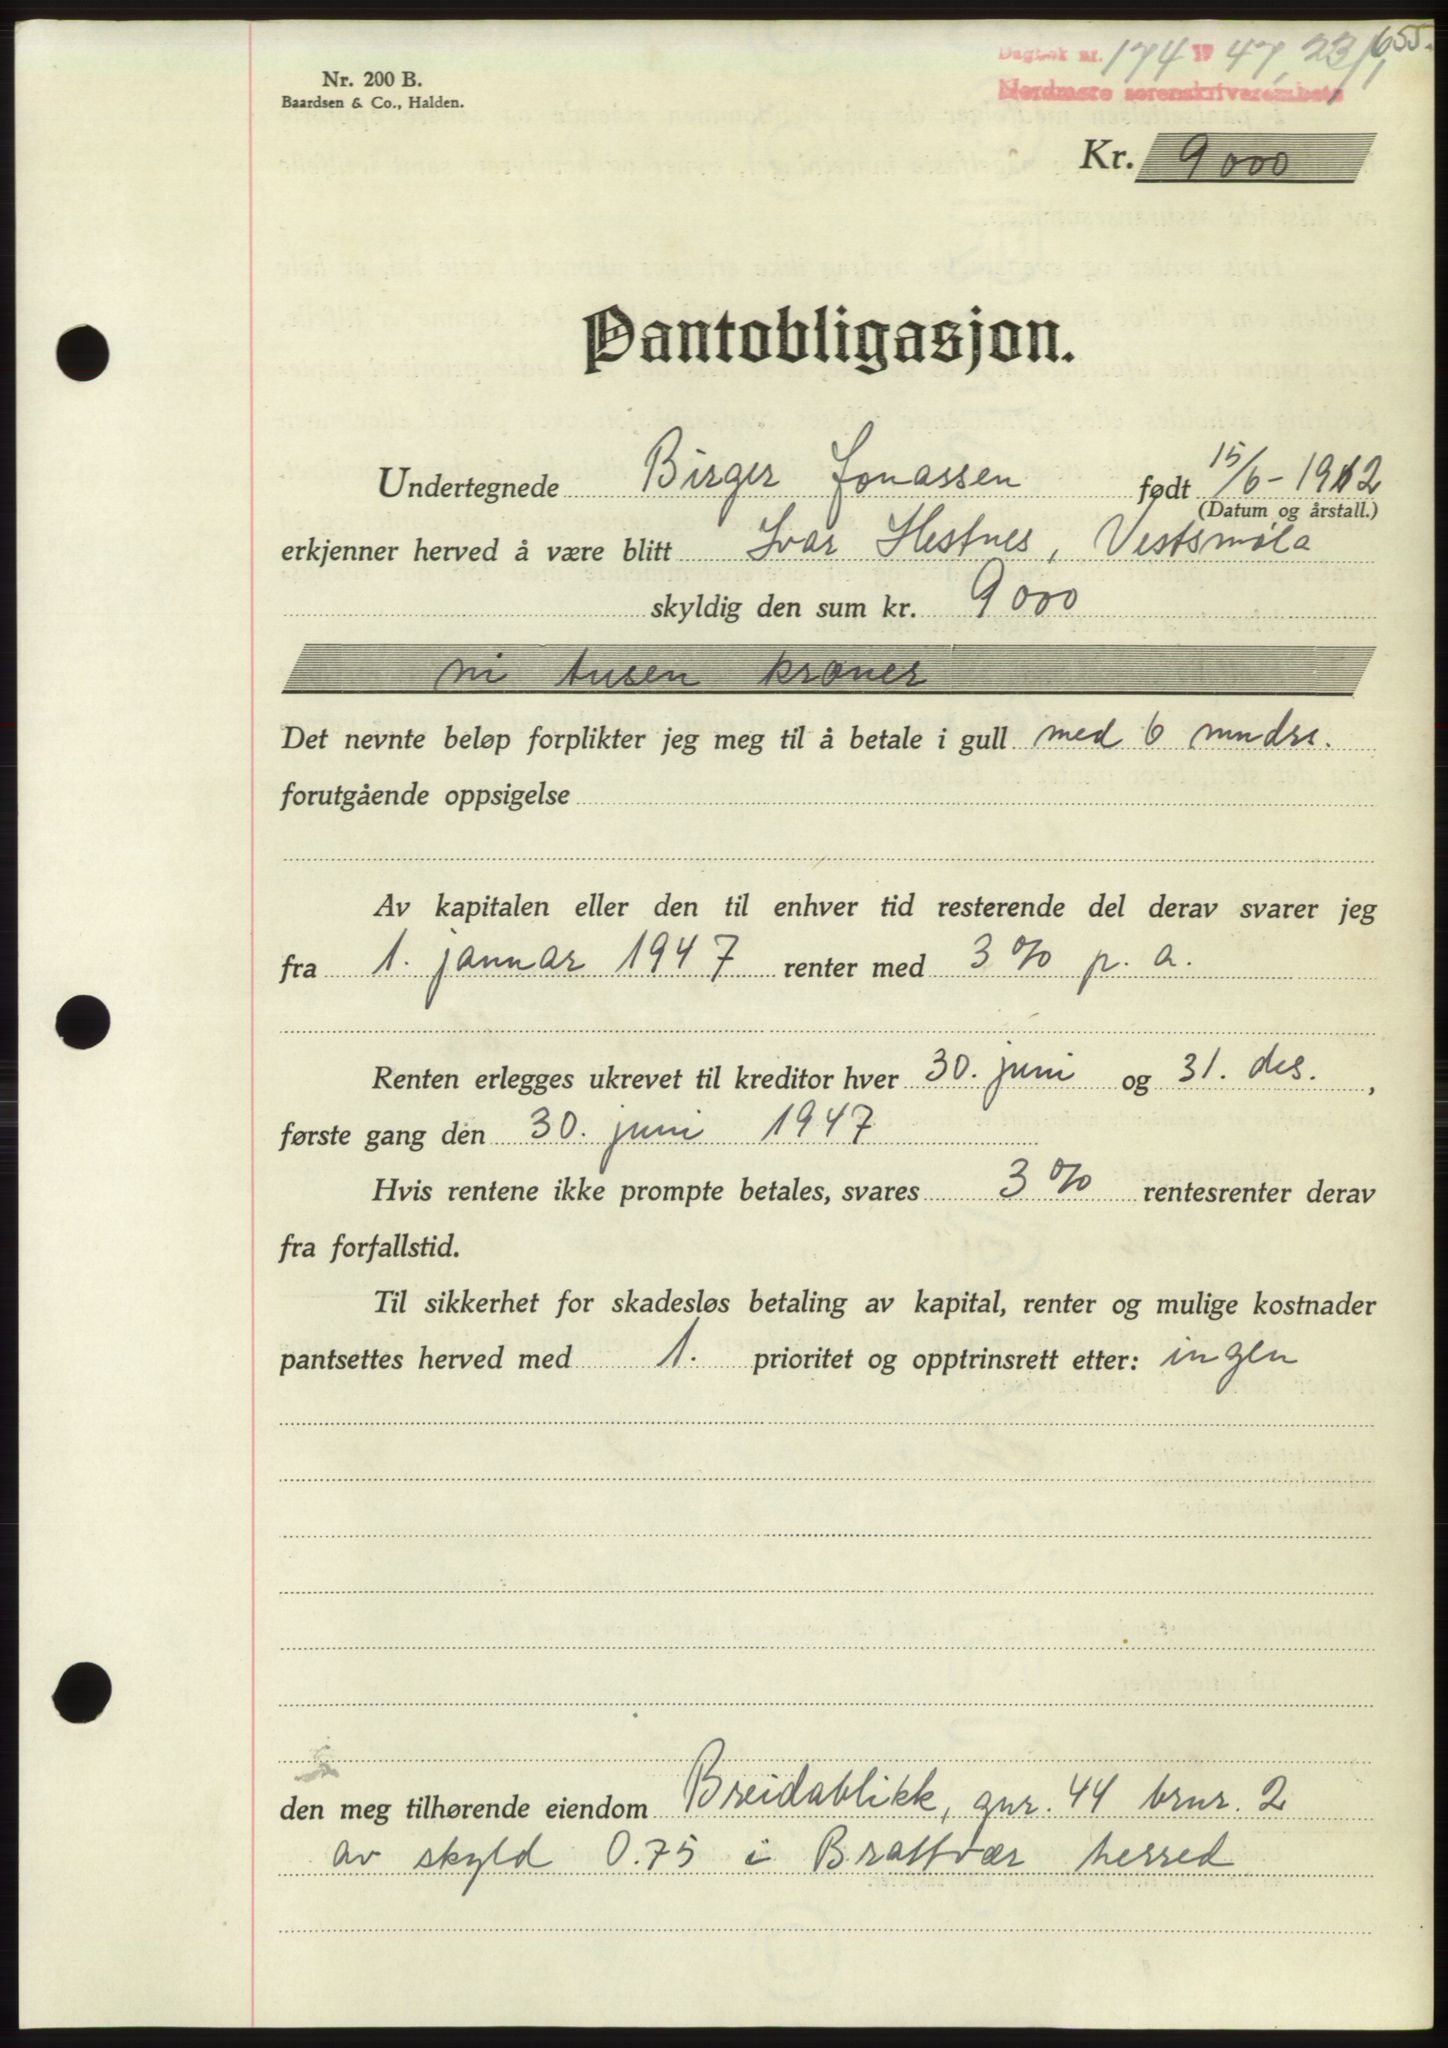 655.
Dagbok nr. 174 1947, 23/1
Nordmøre sorenskriverembete
Nr. 200 B.
Baardsen & Co., Halden.
Kr. 9000
Pantobligasjon.
Undertegnede Birger Jonassen født 15/6-1912
(Datum og årstall.)
erkjenner herved å være blitt Ivar Hestnes, Vestsmøla
skyldig den sum kr. 9000
ni tusen kroner
Det nevnte beløp forplikter jeg meg til å betale i gull med 6 mndrs.
forutgående oppsigelse
Av kapitalen eller den til enhver tid resterende del derav svarer jeg
fra 1. januar 1947 renter med 3 % p. a.
Renten erlegges ukrevet til kreditor hver 30. juni og 31. des.,
første gang den 30. juni 1947
Hvis rentene ikke prompte betales, svares 3 % rentesrenter derav
fra forfallstid.
Til sikkerhet for skadesløs betaling av kapital, renter og mulige kostnader
pantsettes herved med 1. prioritet og opptrinsrett etter: ingen
den meg tilhørende eiendom Breidablikk, gnr. 44 brnr. 2
av skyld 0.75 i Brattvær herred